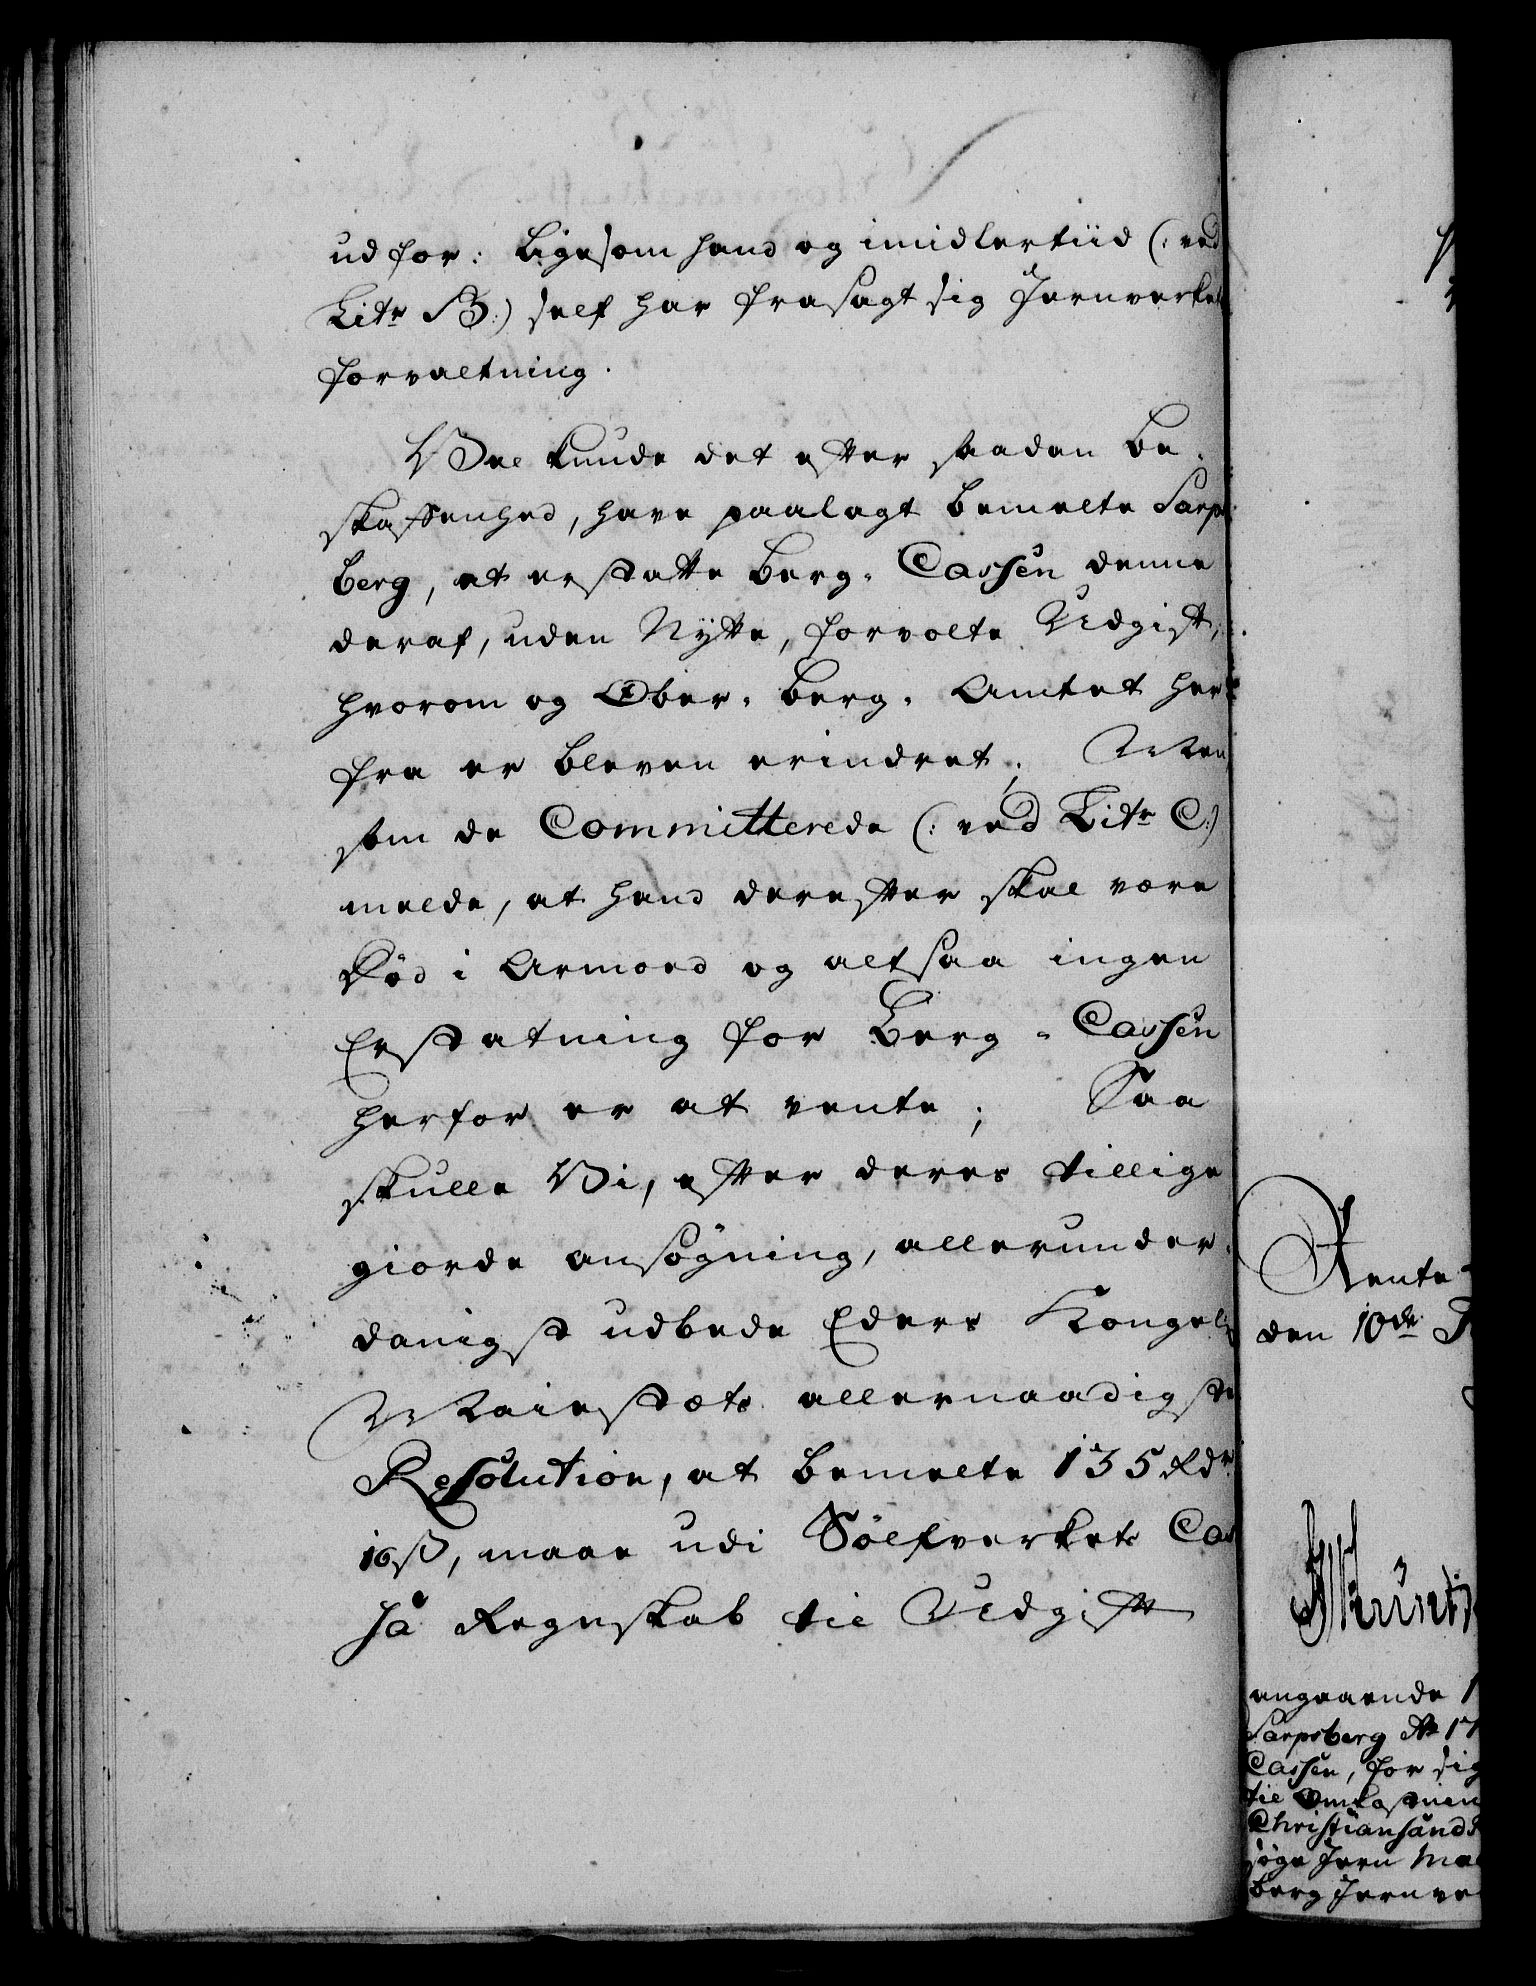 ud for: ligesom hand og imidlertiid (: ved
Litr B:) self har frasagt sig Jernverkets
forvaltning.
Vel kunde det efter saadan be-
skaffenhed, have paalagt bemelte Sarps
berg, at erstatte Berg-Cassen denne
deraf, uden Nytte, forvolte Udgift,
hvorom og Ober-Berg-Amtet her
fra er bleven erindret; Men
som de Committerede (: ved Litr C:)
melde, at hand derefter skal være
død i Armoed og altsaa ingen
Erstatning for Berg-Cassen
herfor er at vente; Saa
skulle Vi, efter deres tillige
giorde ansøgning, allerunder-
danigst udbede Eders Kongel
Maiestæts allernaadigste
Resolution, at bemelte 135 Rdr
16 ß, maae udi Sølfverkets Cas
sa Regnskab til Udgift
Rente
den 10de J
angaaende 1
Sarpsberg Ao 17
Cassen, for sig
til Omkostnin
Christiansands
søge Jern Ma
berg Jernve